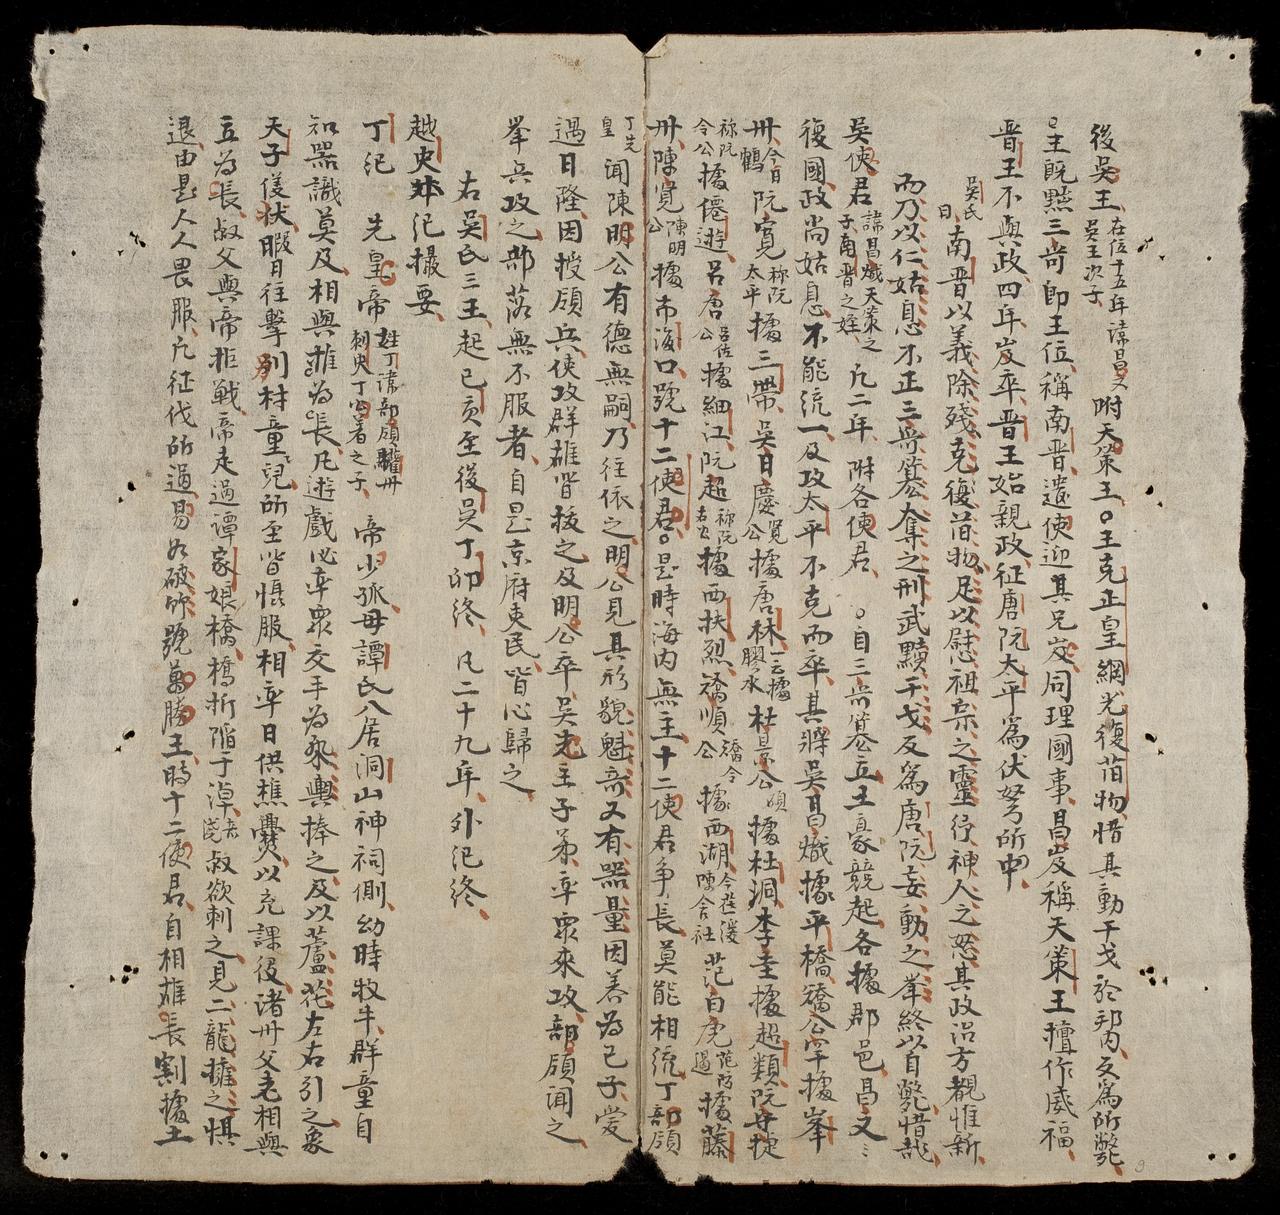 後吳王 在位十五年諱昌文吳王次子 附天策王。王克正皇綱光復旧物惜其動干戈於邦內反為所斃
。王既黜三哥卽王位稱南晋遣使迎其兄岌同理國事昌岌稱天策王擅作威福
晋王不與政四年岌卒晋王始親政征唐阮太平爲伏弩所中
吳氏曰南晋以義除殘克復旧物足以慰祖宗之靈紓神人之怒其政治方覩惟新
而乃以仁姑息不正三哥簒奪之刑武黷干戈反爲唐阮妄動之峯終以自斃惜哉
吳使君 諱昌熾天策之子南晋之姪 凡二年 附各使君 。自三哥簒立土豪競起各據郡邑昌文
復國政尚姑息不能統一及攻太平不克而卒其將吳昌熾據平橋矯公罕據峯
州 今白鶴 阮寬 称阮太平 據三帶吳日慶 覽公 據唐林 一云據膠水 杜景公 碩 據杜洞李圭據超類阮守捷
称阮令公 據僊遊呂唐 呂佐公 據細江阮超 称阮右公 據西扶烈矯順 矯令公 據西湖 陳舍社 范白虎 范防遏 據藤
州陳覽 陳明公 據布海口號十二使君。是時海內無主十二使君爭長莫能相統丁部領
丁先皇 聞陳明公有德無嗣乃往依之明公見其形貌魁奇又有器量因養為己子愛
遇日隆因授領兵使攻群雄皆拔之及明公卒吳先主子弟率衆來攻部領聞之
举兵攻之部落無不服者自是京府吏民皆心歸之
右吳氏三王起己亥至後吳丁卯終凡二十九年外紀終
越史外紀撮要
丁紀 先皇帝 姓丁諱部領驩州刺史丁公著之子 帝少孤母譚氏入居洞山神祠側幼時牧牛群童自
知器識莫及相與推為長凡遊戲必率衆交手為乘輿捧之及以蘆花左右引之象
天子儀状暇日往擊別村童兒所至皆惧服相率日供樵爨以充課役諸册父老相與
立為長叔父與帝拒戰帝走過譚家娘橋橋折陷于淖叔欲刺之見二龍擁之惧
退由是人人畏服凡征伐所過易如破竹號萬勝王時十二使君自相雄長割據土